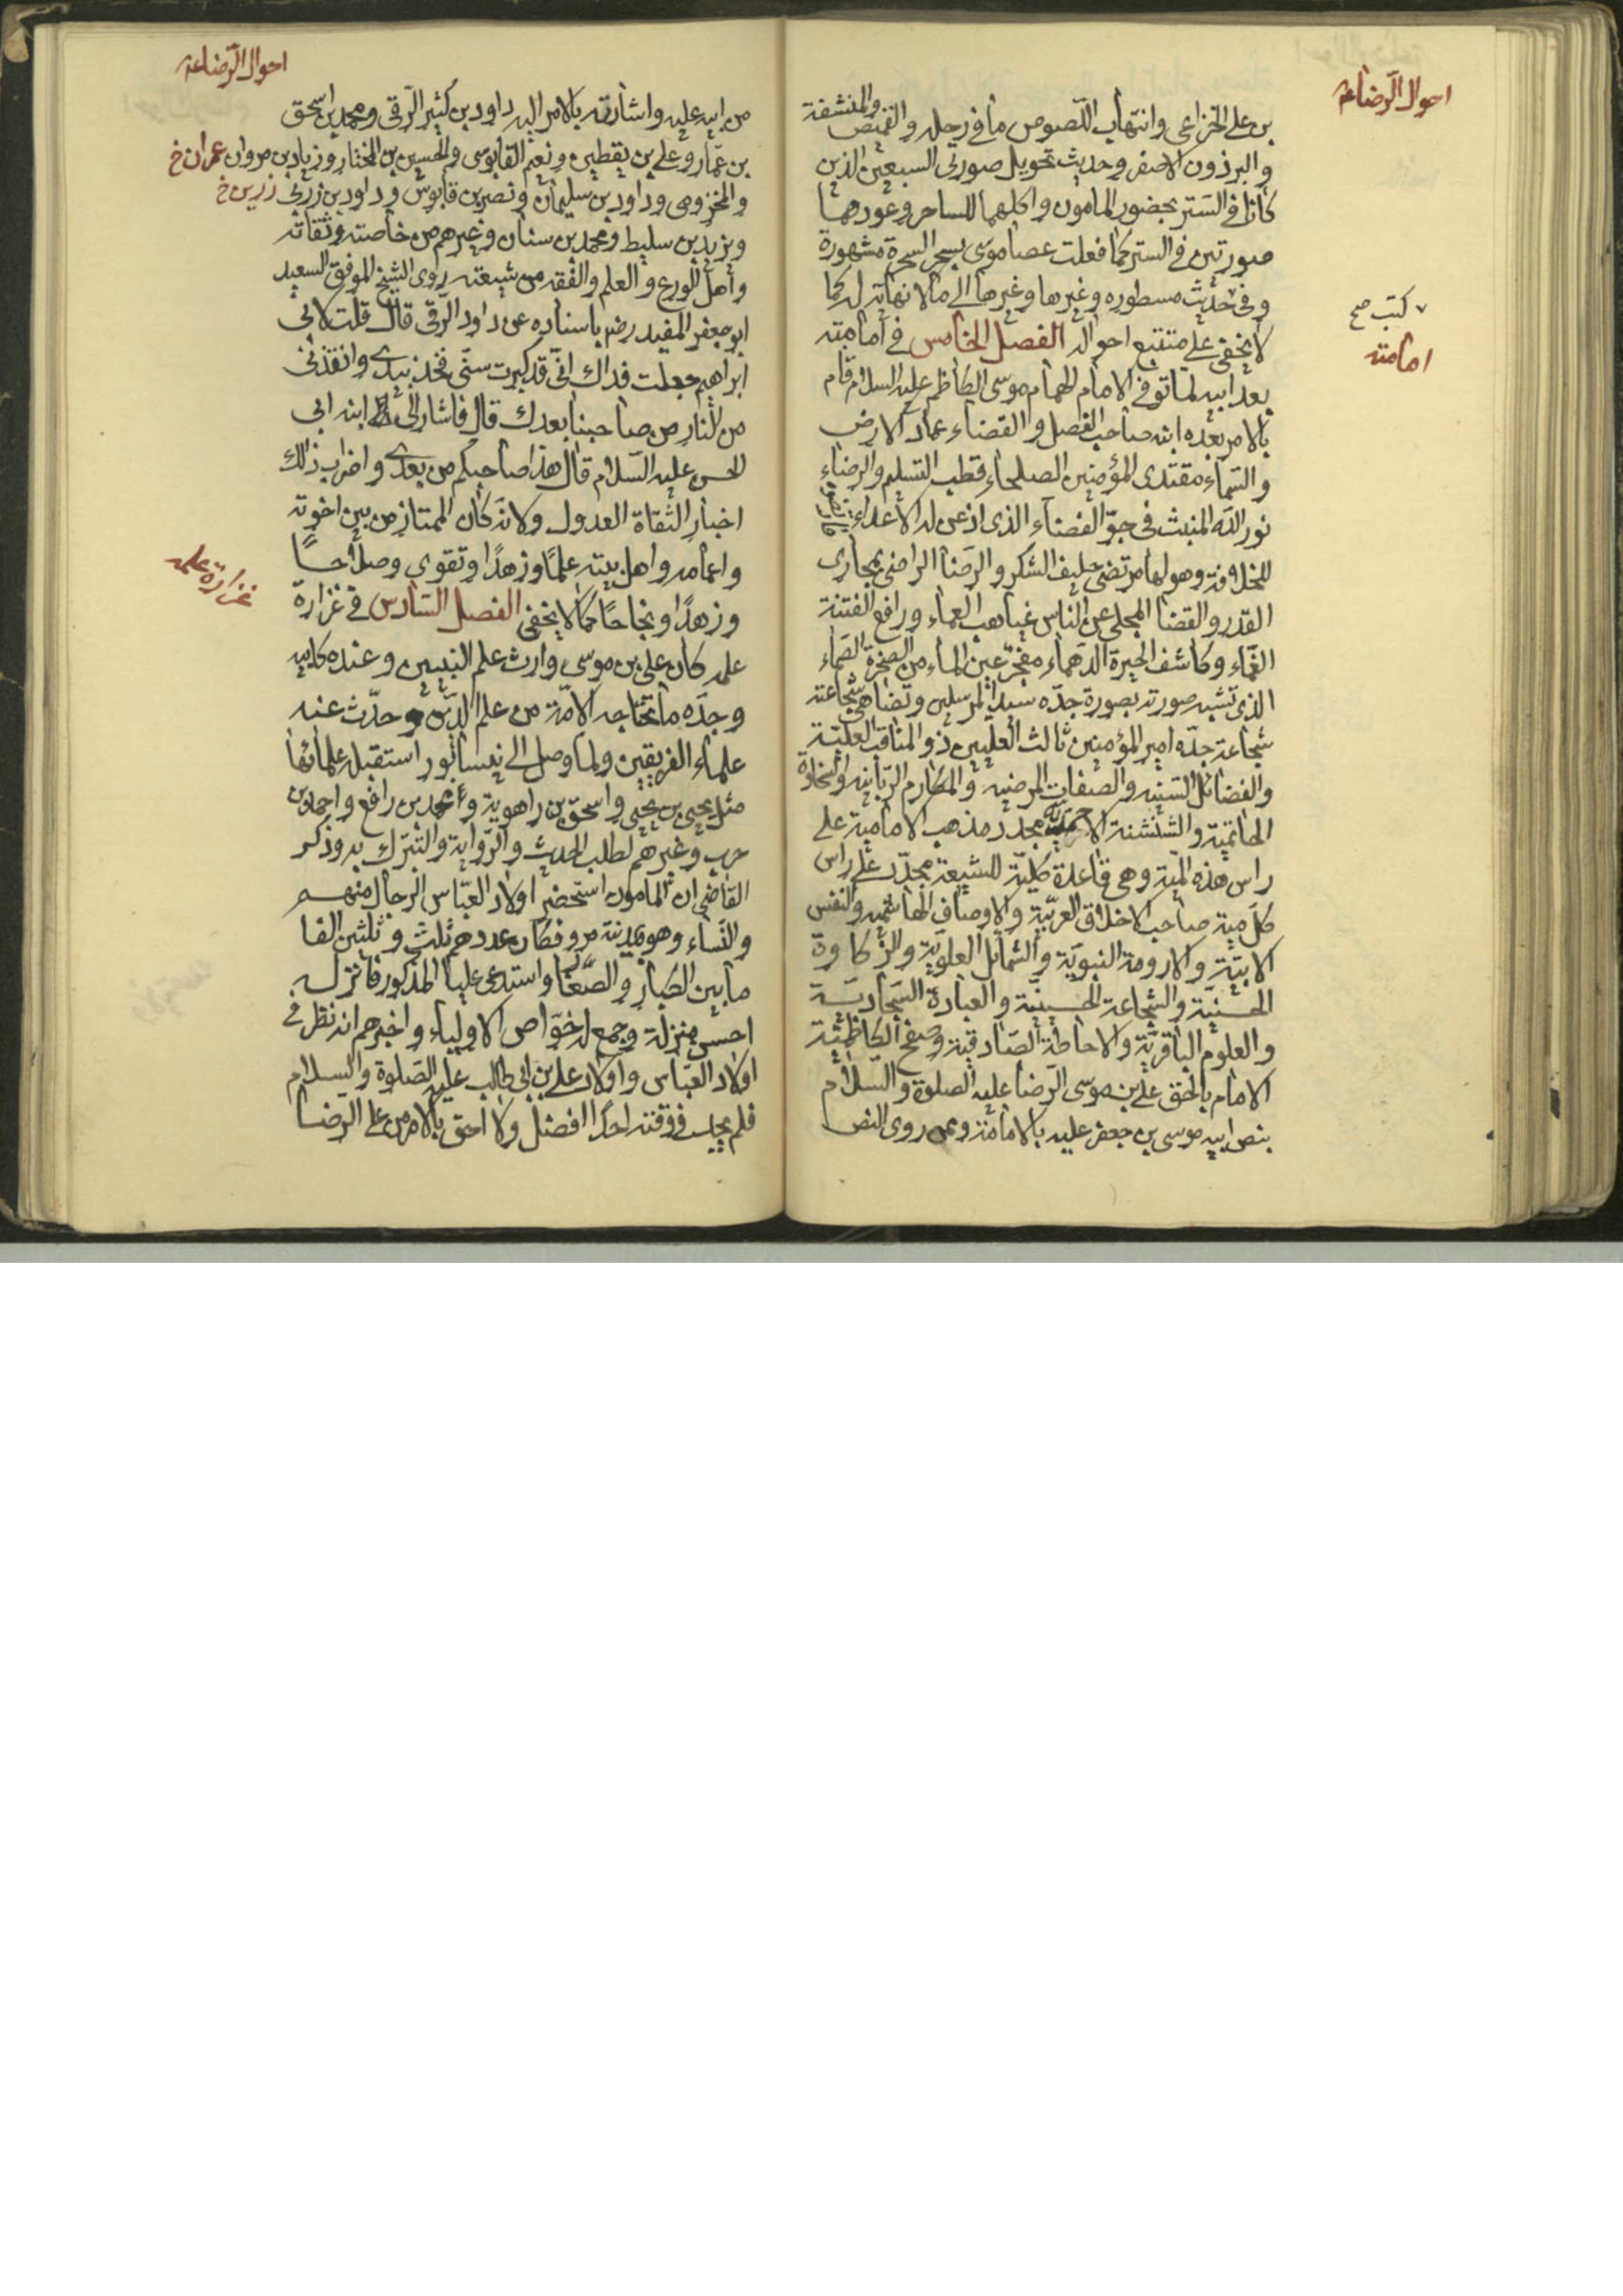 احوال الرضا ع
بن على الخزاعى وانتهاب اللصوص ما فى رحله والقميص والمنشفة
والبرذون الاصفر وحديث تحويل صورتى السبعين الذين
كانا فى الستر بحضور المامون واكلهما للساحر وعودهما
صورتين فى الستر كما فعلت عصا موسى بسحر السحرة مشهورة
وفى حديث مسطوره وغيرها وغيرها الى ما لا نهاية له كما
كتب صح
لا يخفى على متتبع احواله الفصل الخامس فى امامته
امامته
بعد ابيه لما توفى الامام الهمام موسى الكاظم عليه السلام قام
بالامر بعده ابنه صاحب الفصل والقضاء عماد الارض
والسماء مقتدى المؤمنين الصلحاء قطب التسليم والرضاء
نور الله المنبث فى جو الفضاء الذى اذعن له الاعداء
للخلافة وهو لها مرتضى حليف الشكر والرضا الراضى بمجارى
القدر والقضا المجلى عن الناس غياهب العماء ورافع الفتنة
الغماء وكاشف الحيرة الدهماء مفجر عين الماء من الصخرة الصماء
الذى تشبه صورته بصورة جده سيد المرسلين وتضاهى شجاعته
شجاعة جده امير المؤمنين ثالث العليين ذو المناقب العلية
والفضائل السنيه والصفات المرضيه والمكارم الربانيه والسخاوة
الحاتمية والشنشنة مجدد مذهب الامامية على
راس هذه المية وهى قاعدة كلية للشيعة مجدد على راس
كل مية صاحب الاخلاق العربية والاوصاف الهاشميه والنفس
الابية والارومة النبوية والشمائل العلوية والزكاوة
الحسنية والشجاعة الحسينية والعبادة السجادية
والعلوم الباقرية والاحاطة الصادقية وصفح الكاظمية
الامام بالحق على بن موسى الرضا عليه الصلوة والسلام
بنص ابيه موسى بن جعفر عليه بالامامة وممن روى النص
احوال الرضا ع
من ابيه عليه واشارته بالامر اليه داود بن كثير الرقى ومحمد بن اسحق
بن عمار وعلى بن يقطين ونعيم القابوسى والحسين بن المختار وزياد بن مروان عمران خ
والمخزومى وداود بن سليمان ونصر بن قابوس وداود بن زربى زرين خ
ويزيد بن سليط ومحمد بن سنان وغيرهم من خاصته وثقاته
واهل الورع والعلم والفقه من شيعته روى الشيخ الموفق السعيد
ابو جعفر المفيد رضه باسناده عن داود الرقى قال قلت لابى
ابراهيم جعلت فداك انى قد كبرت سنى فخذ بيدى وانقذنى
من النار من صاحبنا بعدك قال فاشار الى ابنه ابى
الحسن عليه السلام قال هذا صاحبكم من بعدى واضراب ذلك
اخبار الثقاة العدول ولانه كان الممتاز من بين اخوته
واعمامه واهل بيته علما وزهدا وتقوى وصلاحا
وزهدا ونجاحا كما لا يخفى الفصل السادس فى غزارة
غزارة علمه
علمه كان على بن موسى وارث علم النبيين وعنده كابيه
وجده ما تحتاجه الامة من علم الدين وحدث عنه
علماء الفريقين ولما وصل الى نيسابور استقبله علمائها
مثل يحيى بن يحيى واسحق بن راهوية ومحمد بن رافع واحمد بن
حرب وغيرهم لطلب الحديث والرواية والتبرك به وذكر
القاضى ان المامون استحضر اولاد العباس الرجال منهم
والنساء وهو بمدينة مرو فكان عددهم ثلث وثلثين الفا
ما بين الكبار والصغار واستدعى عليا المذكور فانزله
احسن منزلة وجمع له خواص الاولياء واخبرهم انه نظر فى
اولاد العباس واولاد على بن ابى طالب عليه الصلوة والسلام
فلم يجد فى وقته احدا افضل ولا احق بالامر من على الرضا